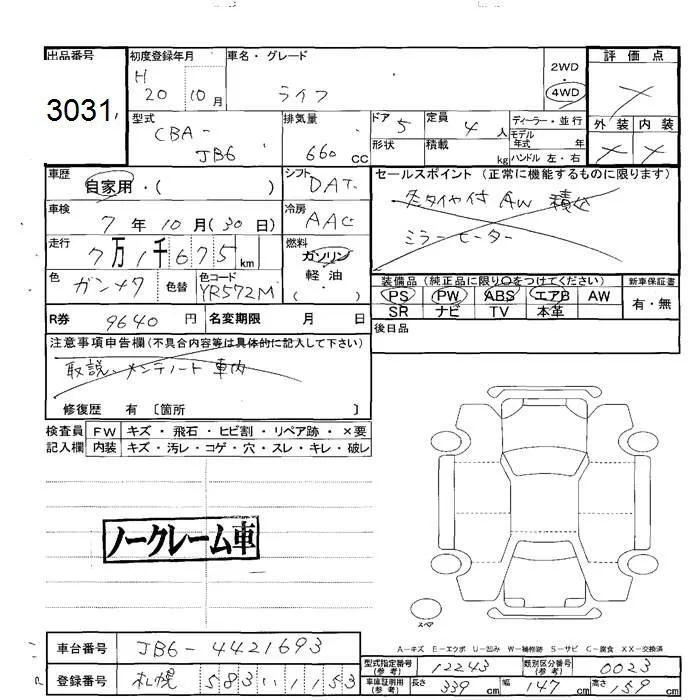 出品番号 初度登録年月 車名・グレード 2WD・4WD 評価点
3031 H 20 10月 ライフ
型式 CBA-JB6 排気量 660 CC ドア 5 定員 4 人 ディーラー・並行 外装 内装
形状 積載 kg モデル年式 年 ハンドル 左・右
車歴 自家用・( ) シフト DAT セールスポイント (正常に機能するものに限ります)
車検 7 年 10 月 (30 日) 冷房 AAC 冬タイヤ付 AW 積込
走行 7万1千675 km 燃料 ガソリン 軽・油 ( ) ミラーヒーター
色 ガンメタ 色替 色コード YR572M 装備品 (純正品に限り○をつけてください) 新車保証書
PS PW ABS エアB AW 有・無
SR ナビ TV 本革
R券 9640 円 名変期限 月 日 後日品
注意事項申告欄 (不具合内容等は具体的に記入して下さい)
取説、メンテノート 車内
修復歴 有 〔箇所 〕
検査員 FW キズ・飛石・ヒビ割・リペア跡・×要
記入欄 内装 キズ・汚レ・コゲ・穴・スレ・キレ・破レ
ノークレーム車
スペア
A−キズ E−エクボ U−凹み W−補修跡 S−サビ C−腐食 XX−交換済
車台番号 JB6-4421693 型式指定番号(参考) 12243 類別区分番号(参考) 0023
登録番号 札幌 583 い 1153 車庫証明用(参考) 長さ 339 cm 幅 147 cm 高さ 159 cm